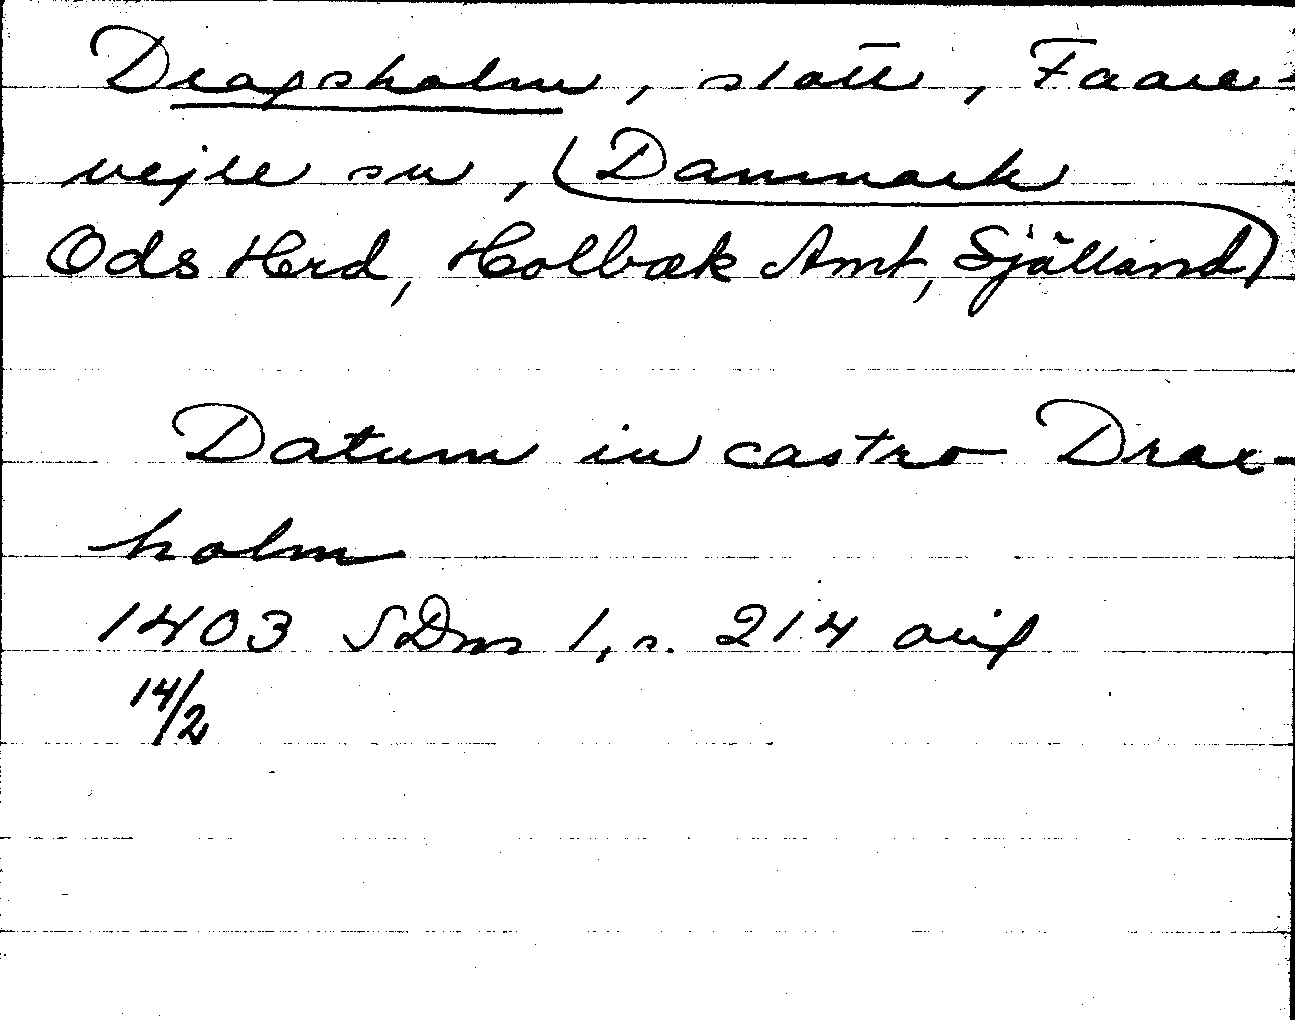 Dragsholm, slott, Faare-
vejle sn, (Danmark
Ods Hrd, Holbæk Amt, Sjælland)
Datum in castro Drax-
holm
1403 SDns 1, s. 214 avif
14/2